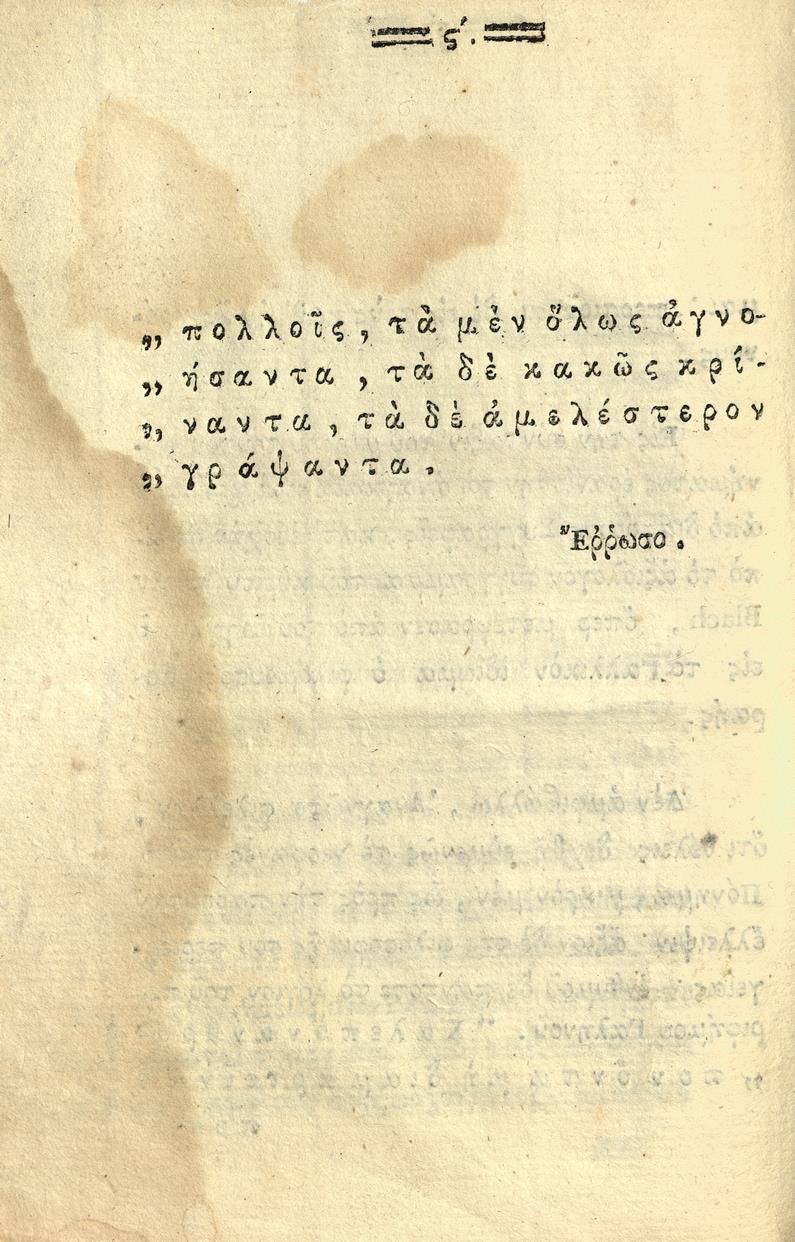 ς΄.
„ πολλοῖς, τὰ μὲν ὅλως ἀγνο-
„ ήσαντα, τὰ δὲ κακῶς κρί-
„ ναντα, τὰ δὲ ἀμελέστερον
„ γράψαντα.
Ἔῤῥωσο.